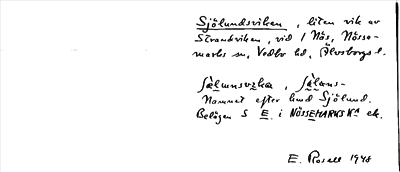 Sjölundsviken, liten vik av
Strandviken, vid 1 Näs, Nösse-
marks sn, Vedbo hd, Älvsborgs l.
Namnet efter hmd Sjölund.
Belägen S E. i NÖSSEMARKS KA ek.
E. Rosell 1948